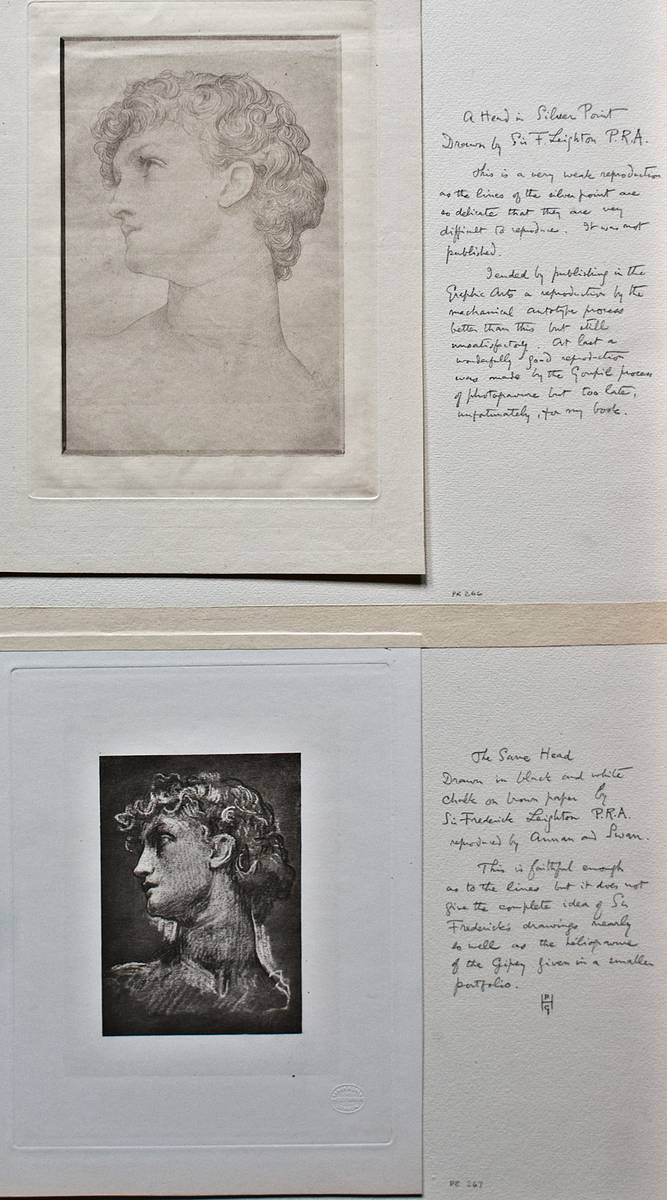 A Head in Silver Point
Drawn by Sir F. Leighton P.R.A.
This is a very weak reproduction
as the lines of the silver point are
so delicate that they are very
difficult to reproduce. It was not
published.
I ended by publishing in the
Graphic Arts a reproduction by the
mechanical autotype process
better than this but still
unsatisfactory. At last a
wonderfully good reproduction
was made by the Goupil process
of photogravure but too late,
unfortunately, for my book.
PK 266
The Same Head
Drawn in black and white
chalk on brown paper by
Sir Frederick Leighton P.R.A.
reproduced by Annan and Swan.
This is faithful enough
as to the lines but it does not
give the complete idea of Sir
Frederick's drawings nearly
so well as the héliogravure
of the Gipsy given in a smaller
portfolio.
PK 267